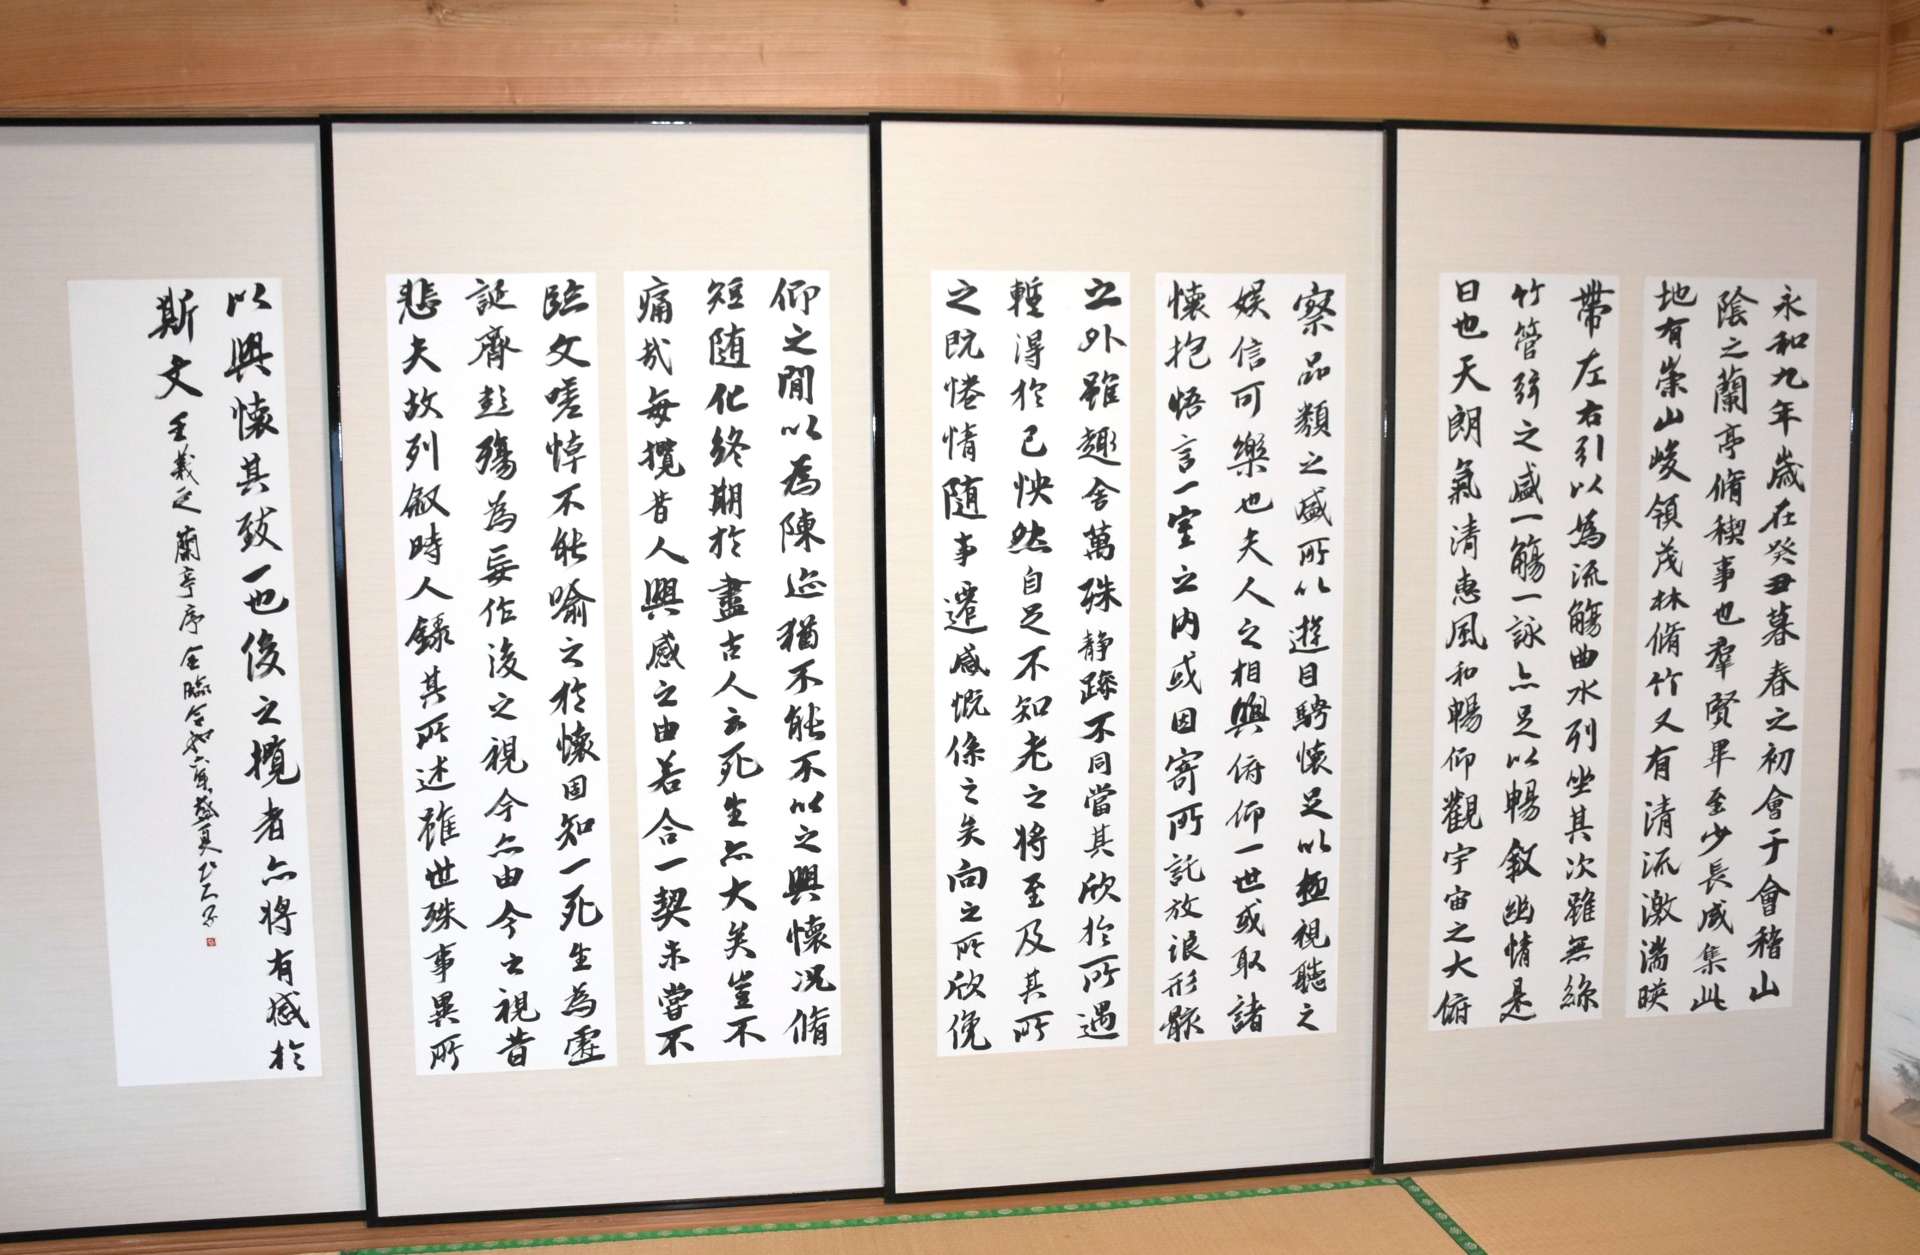 永和九年歳在癸丑暮春之初會于會稽山
陰之蘭亭脩稧事也群賢畢至少長咸集此
地有崇山峻領茂林脩竹又有清流激湍暎
帶左右引以為流觴曲水列坐其次雖無絲
竹管弦之盛一觴一詠亦足以暢叙幽情是
日也天朗氣清惠風和暢仰觀宇宙之大俯
察品類之盛所以遊目騁懷足以極視聽之
娯信可樂也夫人之相與俯仰一世或取諸
懷抱悟言一室之内或因寄所託放浪形骸
之外雖趣舍萬殊静躁不同當其欣於所遇
蹔得於己怏然自足不知老之将至及其所
之既惓情随事遷感慨係之矣向之所欣俛
仰之閒以為陳迹猶不能不以之興懷况脩
短随化終期於盡古人云死生亦大矣豈不
痛哉毎攬昔人興感之由若合一契未甞不
臨文嗟悼不能喻之於懷固知一死生為虚
誕齊彭殤為妄作後之視今亦由今之視昔
悲夫故列叙時人録其所述雖世殊事異所
以興懷其致一也後之攬者亦将有感於
斯文 王羲之 蘭亭序 全臨 令和六年